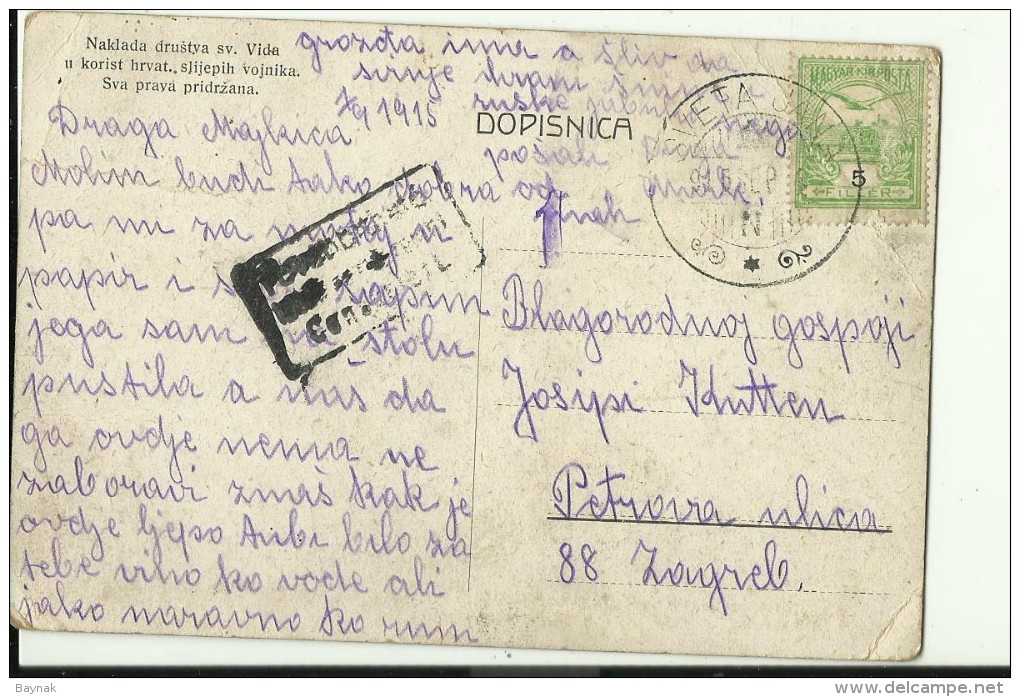 Naklada društva sv. Vida
u korist hrvat. slijepih vojnika.
Sva prava pridržana.
DOPISNICA
MAGYAR KIR. POSTA
5
FILLÉR
7/9 1915
Draga Majkica
Molim budi tako dobra
pa mi za
papir i
jega sam na stolu
pustila a naš da
ga ovdje nema ne
zaboravi znaš kak je
ovdje ljepo tubi bilo za
tebe vino ko vode ali
jako naravno ko rum
grozđa ima a šliv da
svinje hrani
ruske
pošalji
Blagorodnoj gospoji
Josipi Hutten
Petrova ulica
88 Zagreb.
Baynak
www.delcampe.net